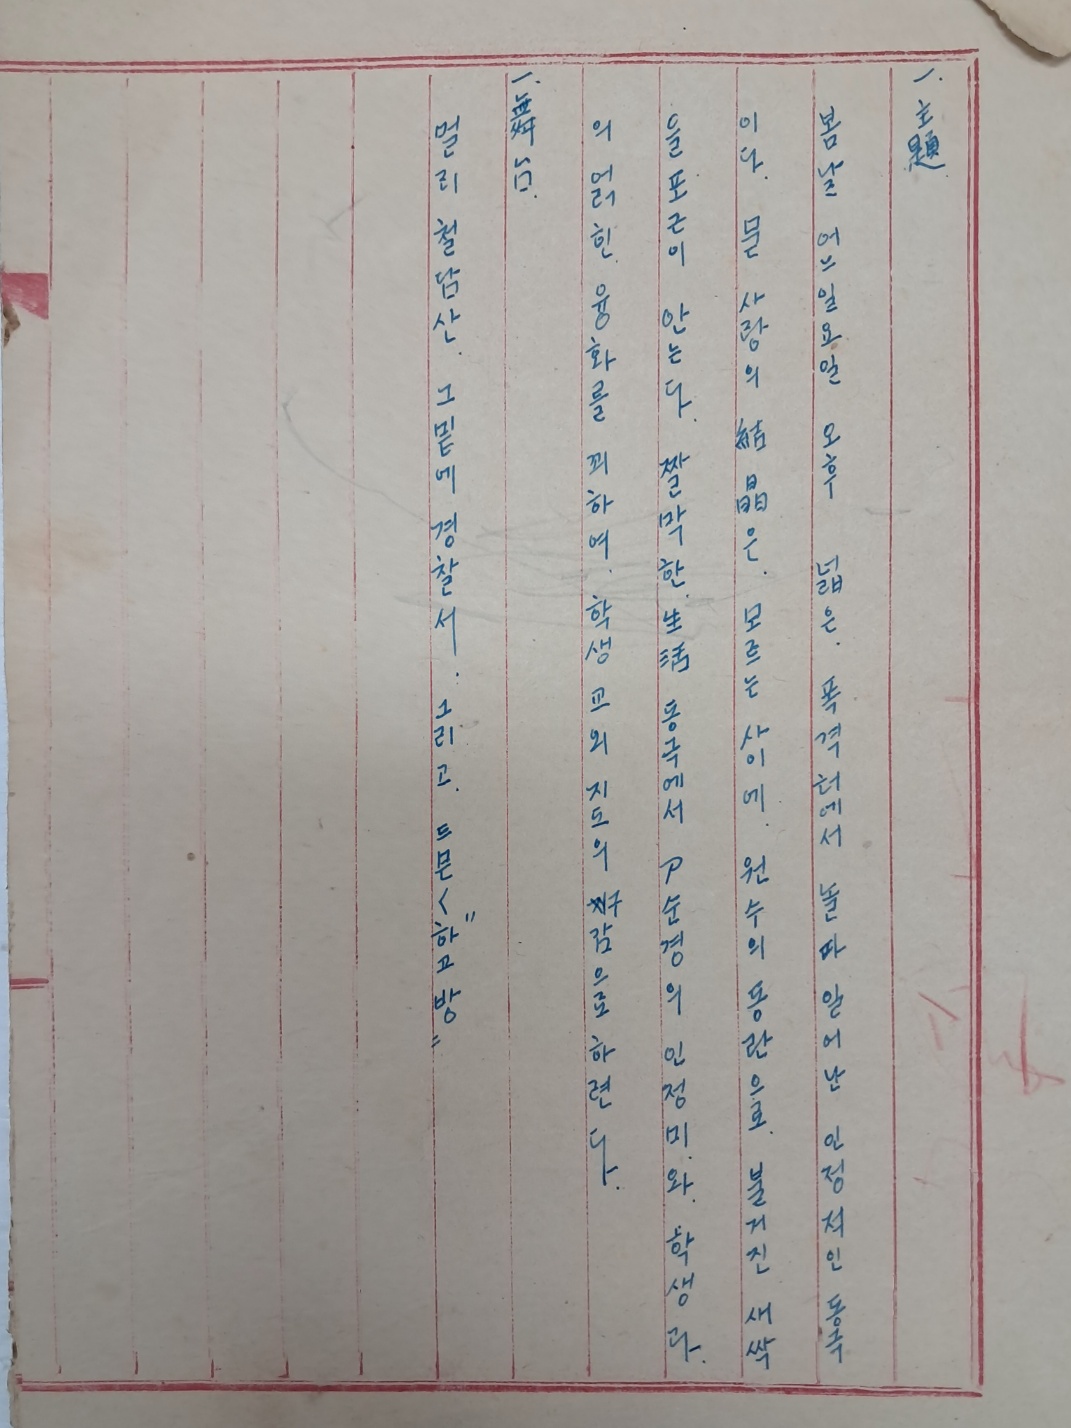 一. 主題
봄날 어느 일요일 오후 넓은. 폭격터에서 놀따 일어난 인정적인 동극
이다. 문 사랑의 結晶은. 모르는 사이에. 원수의 동란으로. 불거진 새싹
을 포근이 안는다. 짤막한. 生活 동극에서 P순경의 인정미.와. 학생과.
의 얽힌. 융화를 꾀하여. 학생 교외 지도의 감으로 하련다.
一. 舞台.
멀리 철담산. 그 밑에 경찰서. 그리고. 드문 "하고방"